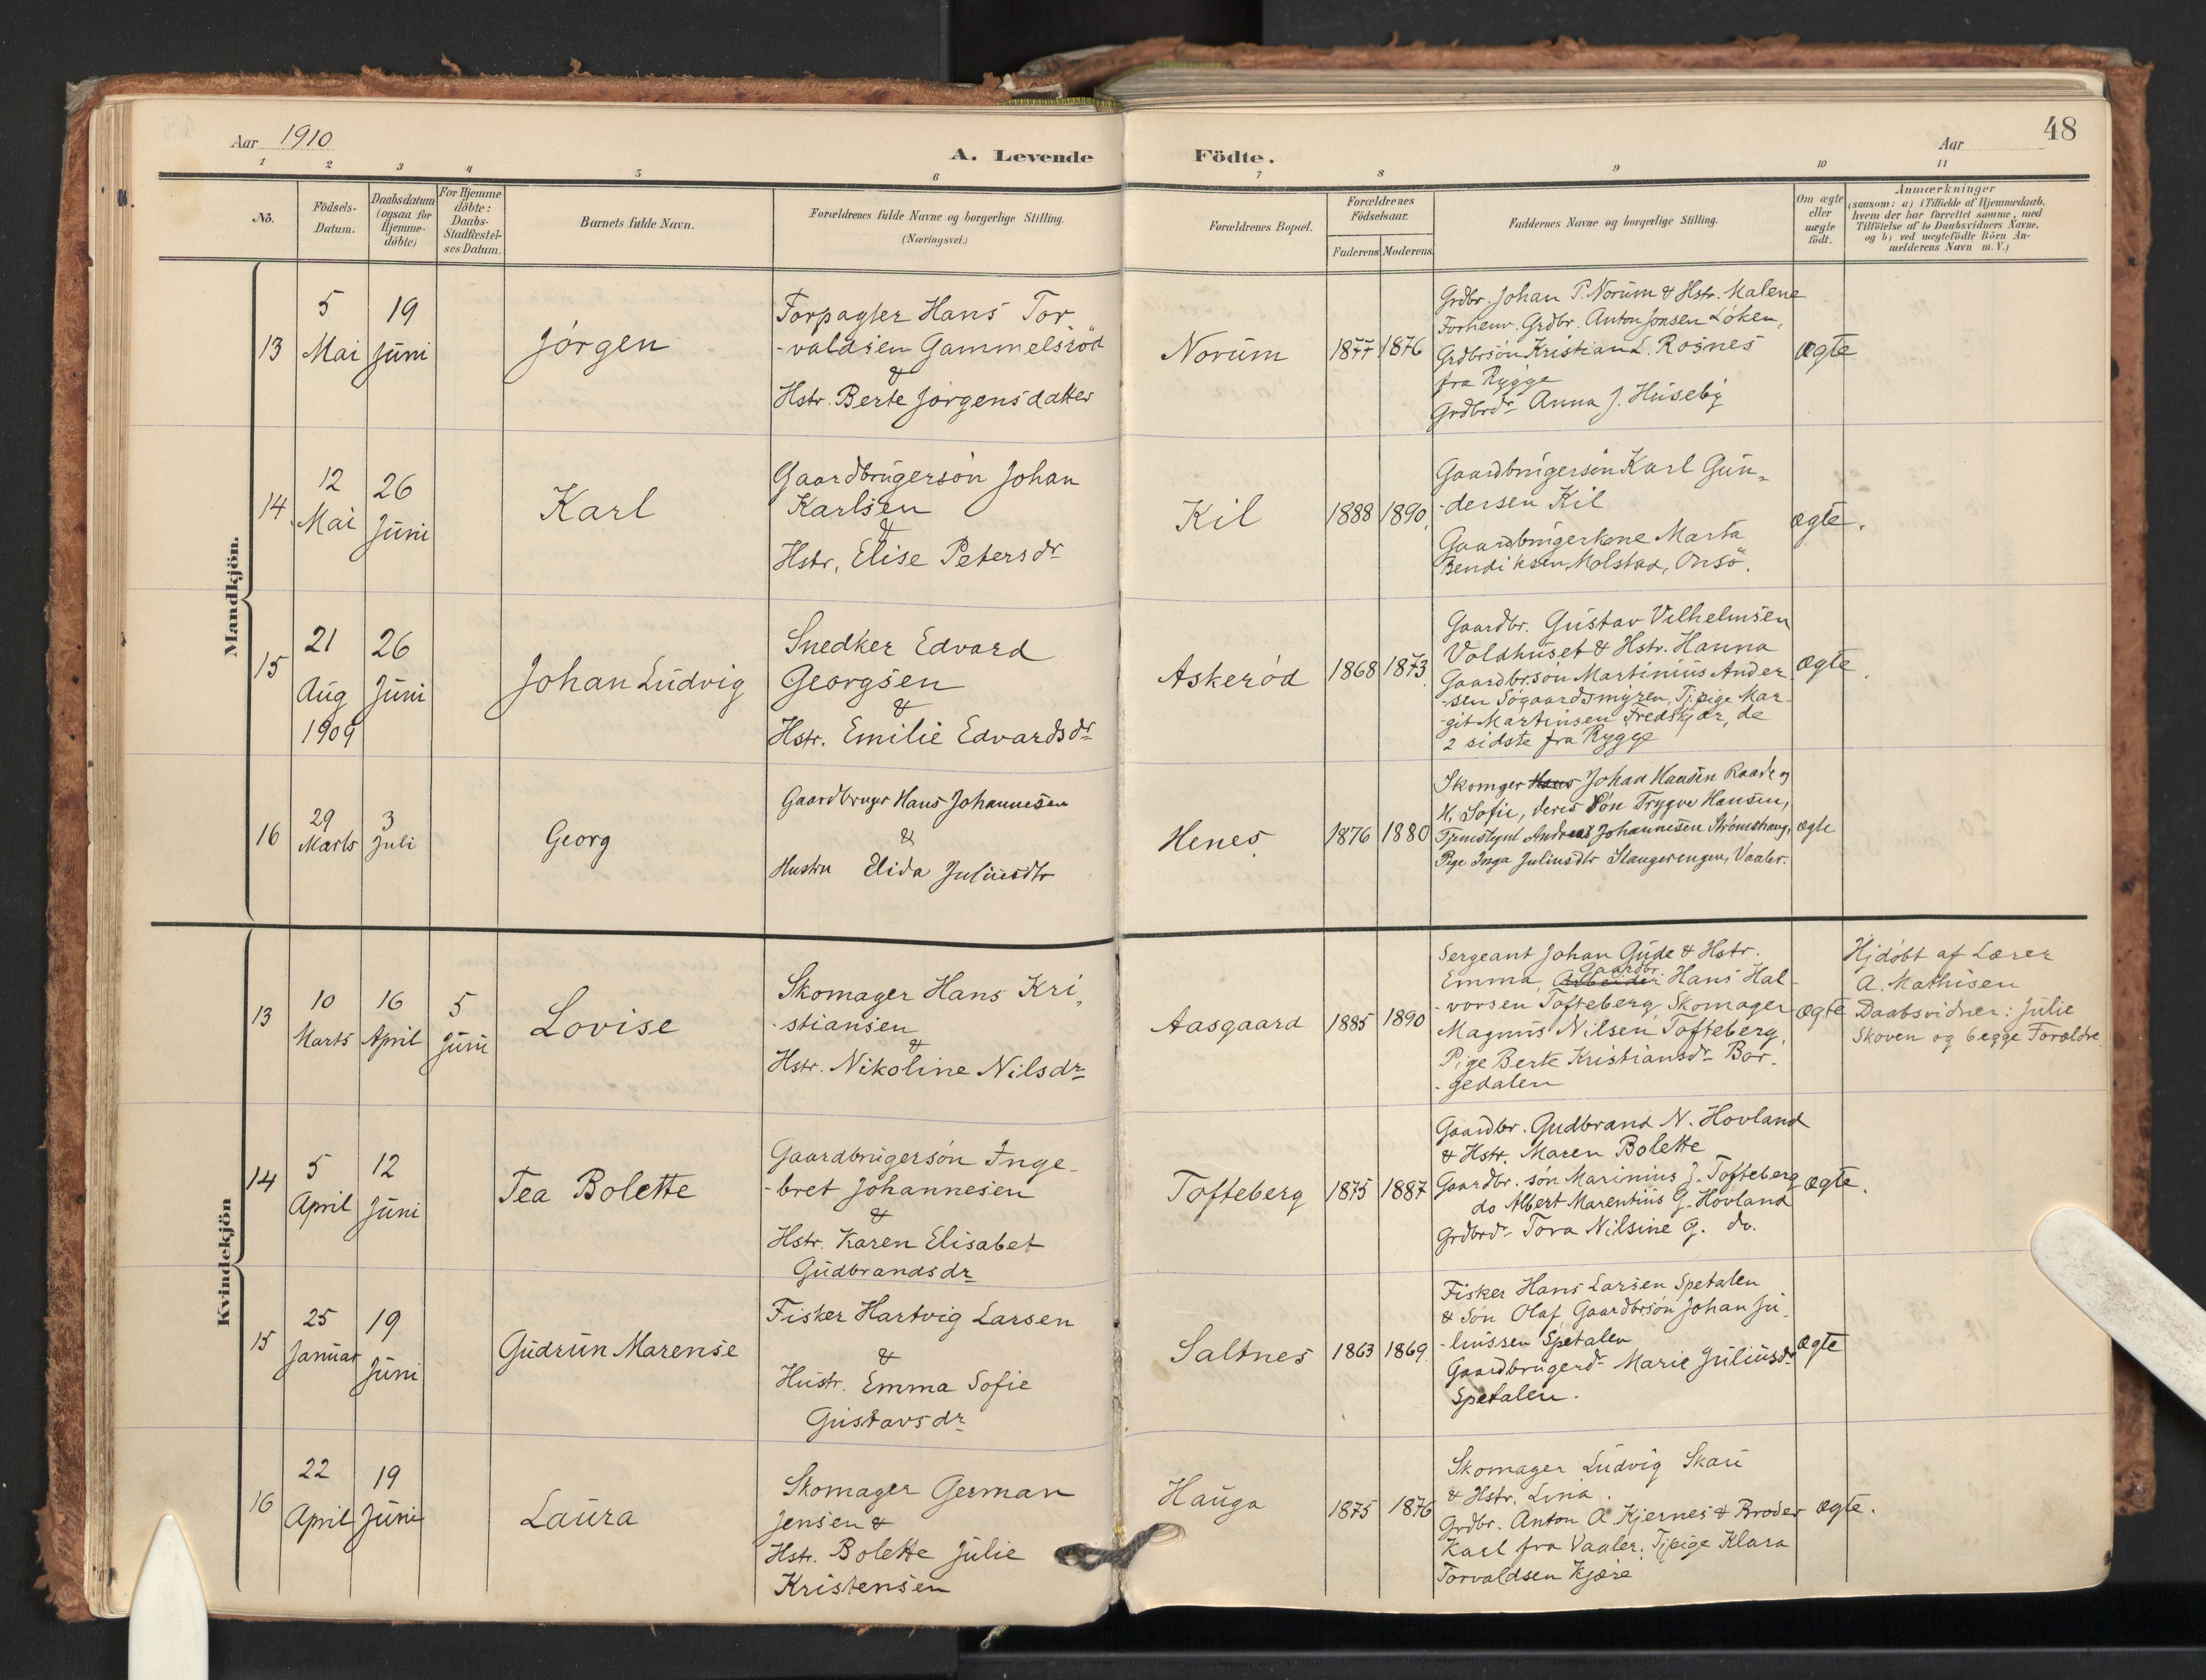 Aar 1910
A. Levende Födte.
Aar
48
1 2 3 4 5 6 7 8 9 10 11
No.
Födsels-
Datum.
Daabsdatum
(ogsaa for
Hjemme-
döbte)
For Hjemme
döbte:
Daabs-
Stadfæstel-
ses Datum.
Barnets fulde Navn.
Forældrenes fulde Navne og borgerlige Stilling.
(Næringsvei.)
Forældrenes Bopæl.
Forældrenes
Födselsaar.
Faderens Moderens
Faddernes Navne og borgerlige Stilling.
Om ægte
eller
uægte
födt.
Anmærkninger
(saasom: a) i Tilfælde af Hjemmedaab,
hvem der har forrettet samme, med
Tilföielse af to Daabsvidners Navne,
og b) ved uægtefödte Börn An-
melderens Navn m. V.)
Mandkjön.
13
5
Mai
19
Juni
Jórgen
Forpagter Hans Tor-
-valdsen Gammelsröd
&
Hstr. Berte Jörgensdatter
Norum
1877 1876
Grdbr. Johan P. Norum & Hstr. Malene
Forhenv. Grdbr. Anton Jonsen Löken,
Grdbrsön Kristian L. Rosnes
fra Rygge
Grdbrdr Anna J. Huseby
ægte
14.
12
Mai
26
Juni
Karl
Gaardbrugersön Johan
Karlsen
&
Hstr. Elise Petersdr
Kil
1888 1890
Gaardbrugersön Karl Gun-
-dersen Kil
Gaardbrugerkone Marta
Bendiksen Molstad, Onsö.
ægte.
15
21
Aug
1909
26
Juni
Johan Ludvig
Snedker Edvard
Georgsen
&
Hstr. Emilie Edvardsdr
Askeröd
1868 1873
Gaardbr. Gustav Vilhelmsen
Voldhuset & Hstr. Hanna
Gaardbrsön Martinius Ander
-sen Sógaardsmyren, Tjpige Mar-
-git Martinsen Fredskjær, de
2 sidste fra Rygge
ægte.
16
29
Marts
3
Juli
Georg
Gaardbruger Hans Johannesen
&
Hustru Elida Juliusdtr
Henes
1876 1880
Skomger Hans Johan Hansen Raade og
H. Sofie, deres Sön Trygve Hansen,
Tjenestgut Andreas Johannesen Strömshaug,
Pige Inga Juliusdtr Slangerengen, Vaaler.
ægte
Kvindekjön
13
10
Marts
16
April
5
Juni
Lovise
Skomager Hans Kri-
-stiansen
&
Hstr. Nikoline Nilsdr
Aasgaard
1885 1890
Sergeant Johan Gude & Hstr.
Emma, Arbeider Gaardbr. Hans Hal-
-vorsen Tofteberg, Skomager
Magnus Nilsen Tofteberg,
Pige Berte Kristiansdr Bor-
-gedalen
ægte
Hjdöbt af Lærer
A. Mathisen
Daabsvidner: Julie
Skoven og begge Forældre.
14
5
April
12
Juni
Tea Bolette
Gaardbrugersön Inge-
-bret Johannesen
&
Hstr. Karen Elisabet
Gudbrandsdr
Tofteberg
1875 1887
Gaardbr. Gudbrand N. Hovland
& Hstr. Maren Bolette
Gaardbr. sön Marinius J. Tofteberg
do Albert Marentius G. Hovland
Grdbrdr Tora Nilsine G. do.
ægte.
15
25
Januar
19
Juni
Gudrun Marense
Fisker Hartvig Larsen
&
Hustr. Emma Sofie
Gustavsdr
Saltnes
1863 1869
Fisker Hans Larsen Spetalen
& Sön Olaf, Gaardbrsön Johan Ju-
-liussen Spetalen
Gaardbrugerdr Marie Juliusdr
Spetalen.
ægte
16
22
April
19
Juni
Laura
Skomager German
Jensen &
Hstr. Bolette Julie
Kristensen
Hauga
1875 1876
Skomager Ludvig Skau
& Hstr. Lina.
Grdbr. Anton A. Kjernes & Broder
Karl fra Vaaler, Tjpige Klara
Torvaldsen Kjære
ægte.